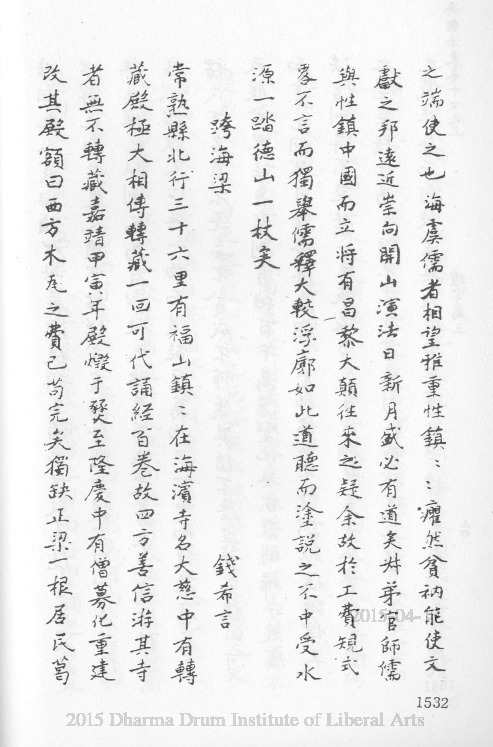 之端使之也海虞儒者相望雅重性鎮〻〻癯然貧衲能使文
獻之邦遠近崇向開山演法日新月盛必有道矣州弟官師儒
與性鎮中國而立將有昌黎大顛往來之疑余故於工費規式
畧不言而獨舉儒釋大較浮廓如此道聽而塗説之不中受水
源一踏德山一杖矣
跨海梁
錢希言
常熟縣北行三十六里有福山鎮〻在海濱寺名大慈中有轉
藏殿極大相傳轉藏一回可代誦經百卷故四方善信游其寺
者無不轉藏嘉靖甲寅年殿燬于燹至隆慶中有僧募化重建
改其殿額曰西方木瓦之費已苟完矣獨缺正梁一根居民葛
2015-04-
1532
2015 Dharma Drum Institute of Liberal Arts